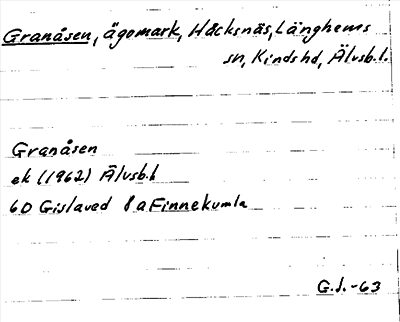 Granåsen, ägomark, Håcksnäs, Länghems
sn, Kinds hd, Älvsb.l.
Granåsen
ek (1962) Älvsb.l
6D Gislaved 8 a Finnekumla
G.J.-63